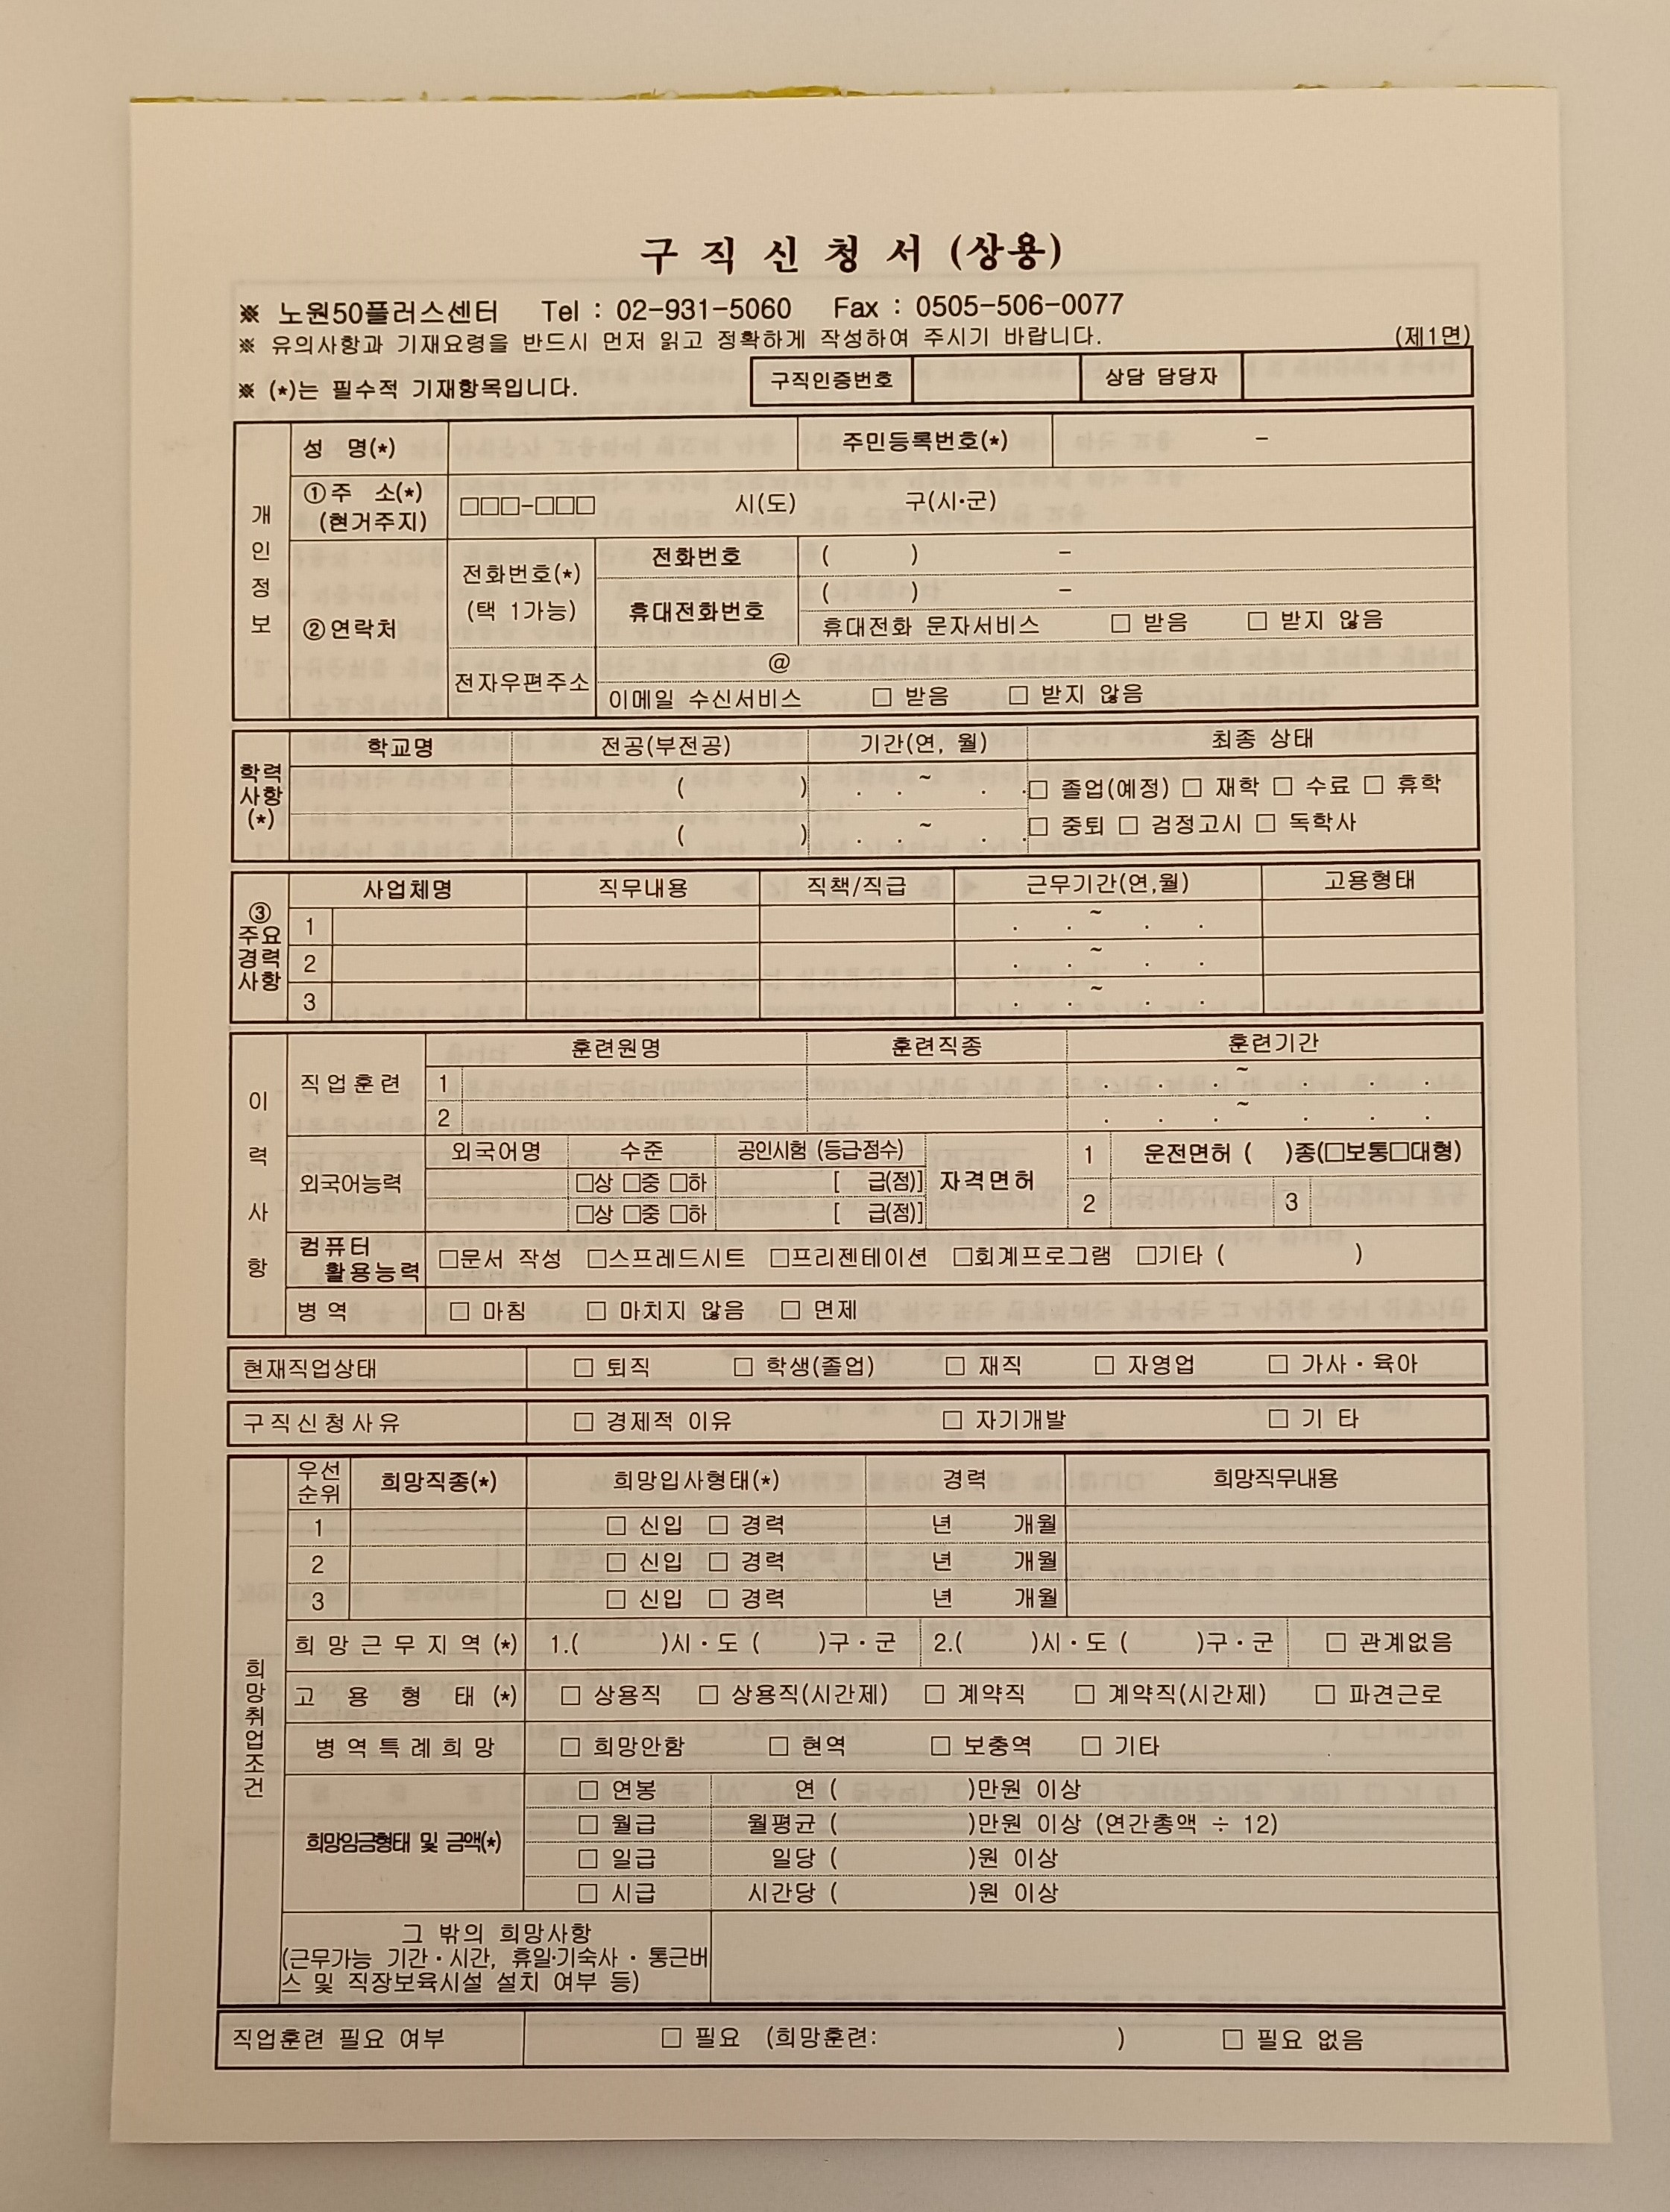 구 직 신 청 서 (상용)
※ 노원50플러스센터 Tel : 02-931-5060 Fax : 0505-506-0077
※ 유의사항과 기재요령을 반드시 먼저 읽고 정확하게 작성하여 주시기 바랍니다. (제1면)
※ (*)는 필수적 기재항목입니다. 구직인증번호 상담 담당자
개인정보
성 명(*) 주민등록번호(*) -
①주 소(*) □□□-□□□ 시(도) 구(시·군)
(현거주지)
②연락처
전화번호(*) 전화번호 ( ) -
(택 1가능) 휴대전화번호 ( ) -
휴대전화 문자서비스 □ 받음 □ 받지 않음
전자우편주소 @
이메일 수신서비스 □ 받음 □ 받지 않음
학력사항(*)
학교명 전공(부전공) 기간(연, 월) 최종 상태
( ) . . ~ . . □ 졸업(예정) □ 재학 □ 수료 □ 휴학
( ) . . ~ . . □ 중퇴 □ 검정고시 □ 독학사
③주요경력사항
사업체명 직무내용 직책/직급 근무기간(연,월) 고용형태
1 . . ~ . .
2 . . ~ . .
3 . . ~ . .
이력사항
직업훈련 훈련원명 훈련직종 훈련기간
1 . . . ~ . . .
2 . . . ~ . . .
외국어능력 외국어명 수준 공인시험 (등급점수) 자격면허 1 운전면허 ( )종(□보통□대형)
□상 □중 □하 [ 급(점)] 2 3
□상 □중 □하 [ 급(점)]
컴퓨터
활용능력 □문서 작성 □스프레드시트 □프리젠테이션 □회계프로그램 □기타 ( )
병역 □ 마침 □ 마치지 않음 □ 면제
현재직업상태 □ 퇴직 □ 학생(졸업) □ 재직 □ 자영업 □ 가사·육아
구직신청사유 □ 경제적 이유 □ 자기개발 □ 기 타
희망취업조건
우선순위 희망직종(*) 희망입사형태(*) 경력 희망직무내용
1 □ 신입 □ 경력 년 개월
2 □ 신입 □ 경력 년 개월
3 □ 신입 □ 경력 년 개월
희망근무지역(*) 1.( )시·도 ( )구·군 2.( )시·도 ( )구·군 □ 관계없음
고 용 형 태 (*) □ 상용직 □ 상용직(시간제) □ 계약직 □ 계약직(시간제) □ 파견근로
병역특례희망 □ 희망안함 □ 현역 □ 보충역 □ 기타
희망임금형태 및 금액(*)
□ 연봉 연 ( )만원 이상
□ 월급 월평균 ( )만원 이상 (연간총액 ÷ 12)
□ 일급 일당 ( )원 이상
□ 시급 시간당 ( )원 이상
그 밖의 희망사항
(근무가능 기간·시간, 휴일·기숙사 · 통근버
스 및 직장보육시설 설치 여부 등)
직업훈련 필요 여부 □ 필요 (희망훈련: ) □ 필요 없음